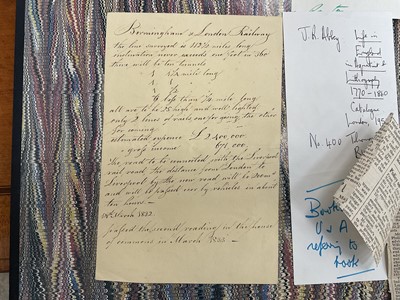 Birmingham & London Railway
the line surveyed is 112¾ miles long
inclination never exceeds one foot in 330
there will be ten tunnels
1 1¼ mile long
1 ¾
1 ½
6 less than ¼ mile long
all are to be 25 high and well lighted
only 2 lines of rails one for going the other
for coming
estimated expence £ 2 400,000
" gross income 671,000
The road to be connected with the Liverpool
rail road the distance from London to
Liverpool by the new road will be 200 m
and will be passed over by vehicles in about
ten hours
March 1832
passed the second reading in the house
of commons in March 1832
J. R. Abbey
Life in
England
in Aquatint &
Lithography
1770 - 1860
Catalogue
London
195
No. 400
Book
V & A
referring to
book